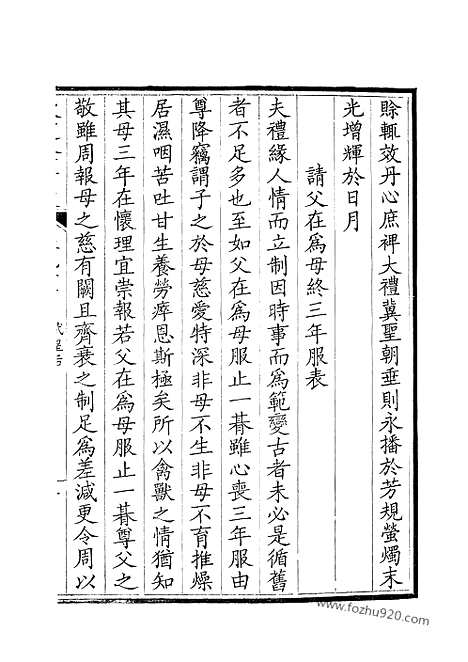 賒輒效丹心庶裨大禮冀聖朝垂則永播於芳規螢燭末
光增輝於日月
請父在爲母終三年服表
夫禮緣人情而立制因時事而爲範變古者未必是循舊
者不足多也至如父在爲母服止一朞雖心喪三年服由
尊降竊謂子之於母慈愛特深非母不生非母不育推燥
居濕咽苦吐甘生養勞瘁恩斯極矣所以禽獸之情猶知
其母三年在懷理宜崇報若父在爲母服止一朞尊父之
敬雖周報母之慈有闕且齊衰之制足爲差減更令周以
www.fozhu920.com